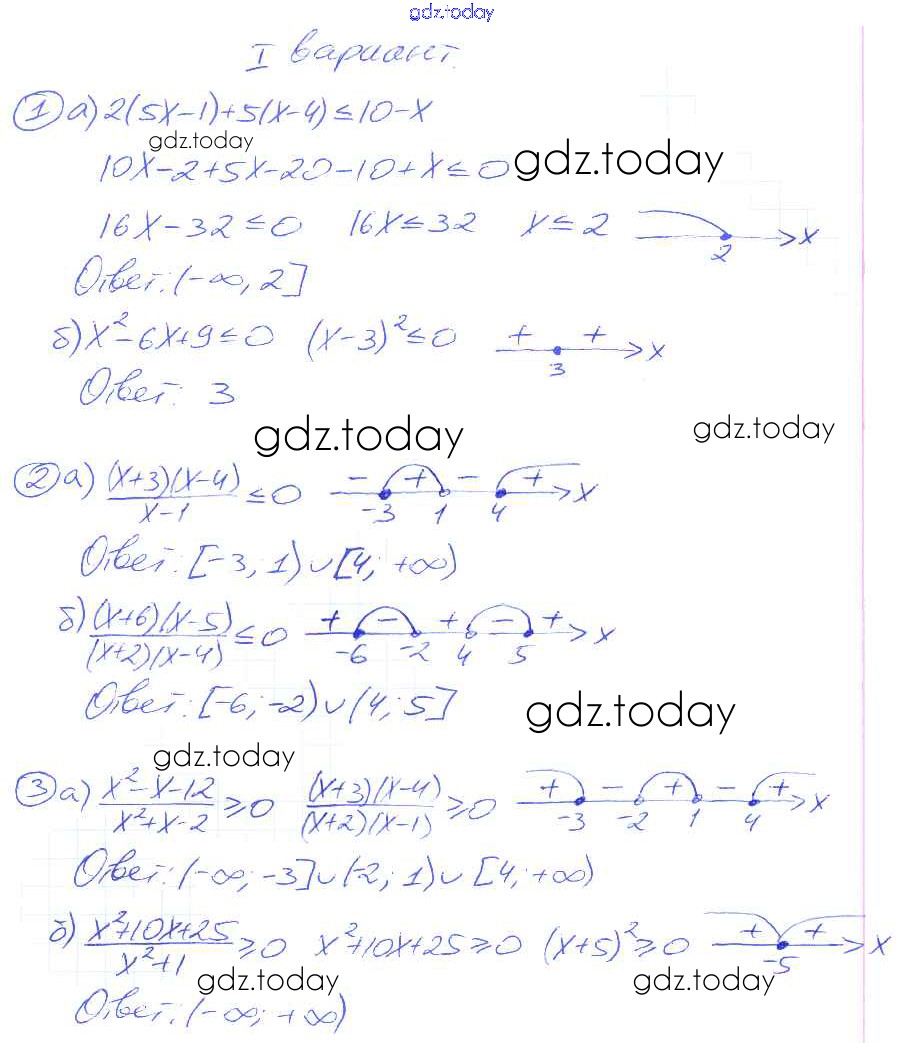 gdz.today
I вариант.
① а) 2(5x-1)+5(x-4)≤10-x
gdz.today
10x-2+5x-20-10+x≤0 gdz.today
16x-32≤0 16x≤32 x≤2 2 x
Ответ: (-∞, 2]
б) x²-6x+9≤0 (x-3)²≤0 + + 3 x
Ответ: 3
gdz.today gdz.today
② а) (x+3)(x-4)/(x-1) ≤0 - + - + -3 1 4 x
Ответ: [-3; 1)∪[4; +∞)
б) (x+6)(x-5)/((x+2)(x-4)) ≤0 + - + - + -6 -2 4 5 x
Ответ: [-6; -2)∪(4; 5]
gdz.today
gdz.today
③ а) (x²-x-12)/(x²+x-2) ≥0 (x+3)(x-4)/((x+2)(x-1)) ≥0 + - + - + -3 -2 1 4 x
Ответ: (-∞; -3]∪(-2; 1)∪[4; +∞)
б) (x²+10x+25)/(x²+1) ≥0 x²+10x+25≥0 (x+5)²≥0 + + -5 x
gdz.today gdz.today
Ответ: (-∞; +∞)